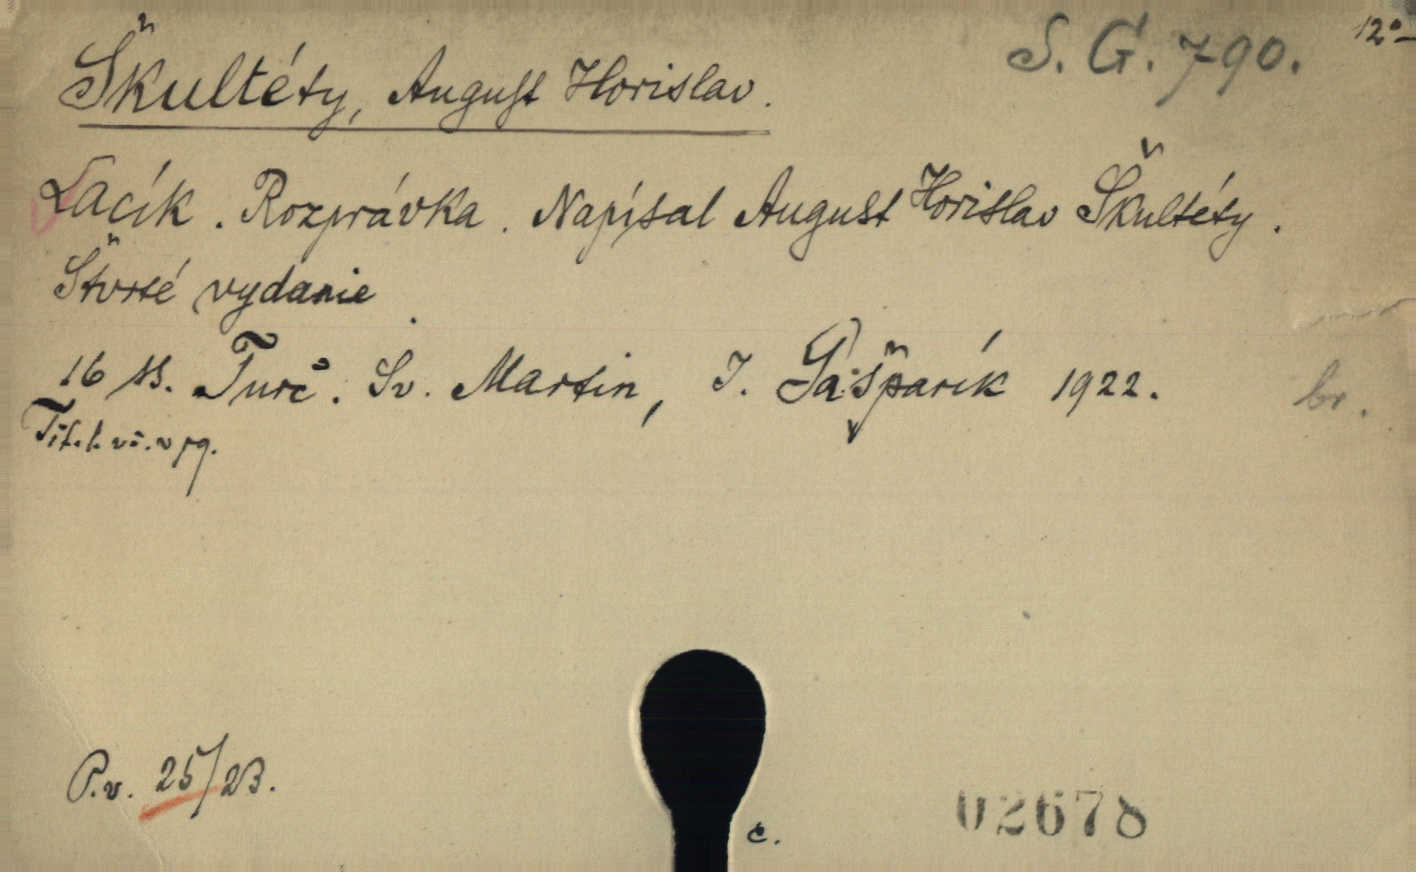 S. G. 790. 12°
Škultéty, August Horislav.
Lacík. Rozprávka. Napísal August Horislav Škultéty.
Štvrté vydanie.
16 ss. Turč. Sv. Martin, J. Gašparík 1922. br.
Tit. l.
P.v. 25/23.
č.
02678